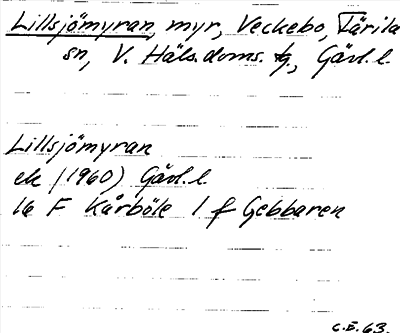 Lillsjömyran, myr, Veckebo, Färila
sn, V. Häls. doms. tg., Gävl. l.
Lillsjömyran
ek (1960) Gävl. l.
16 F Kårböle 1 f Gebbaren
C.E. 63.